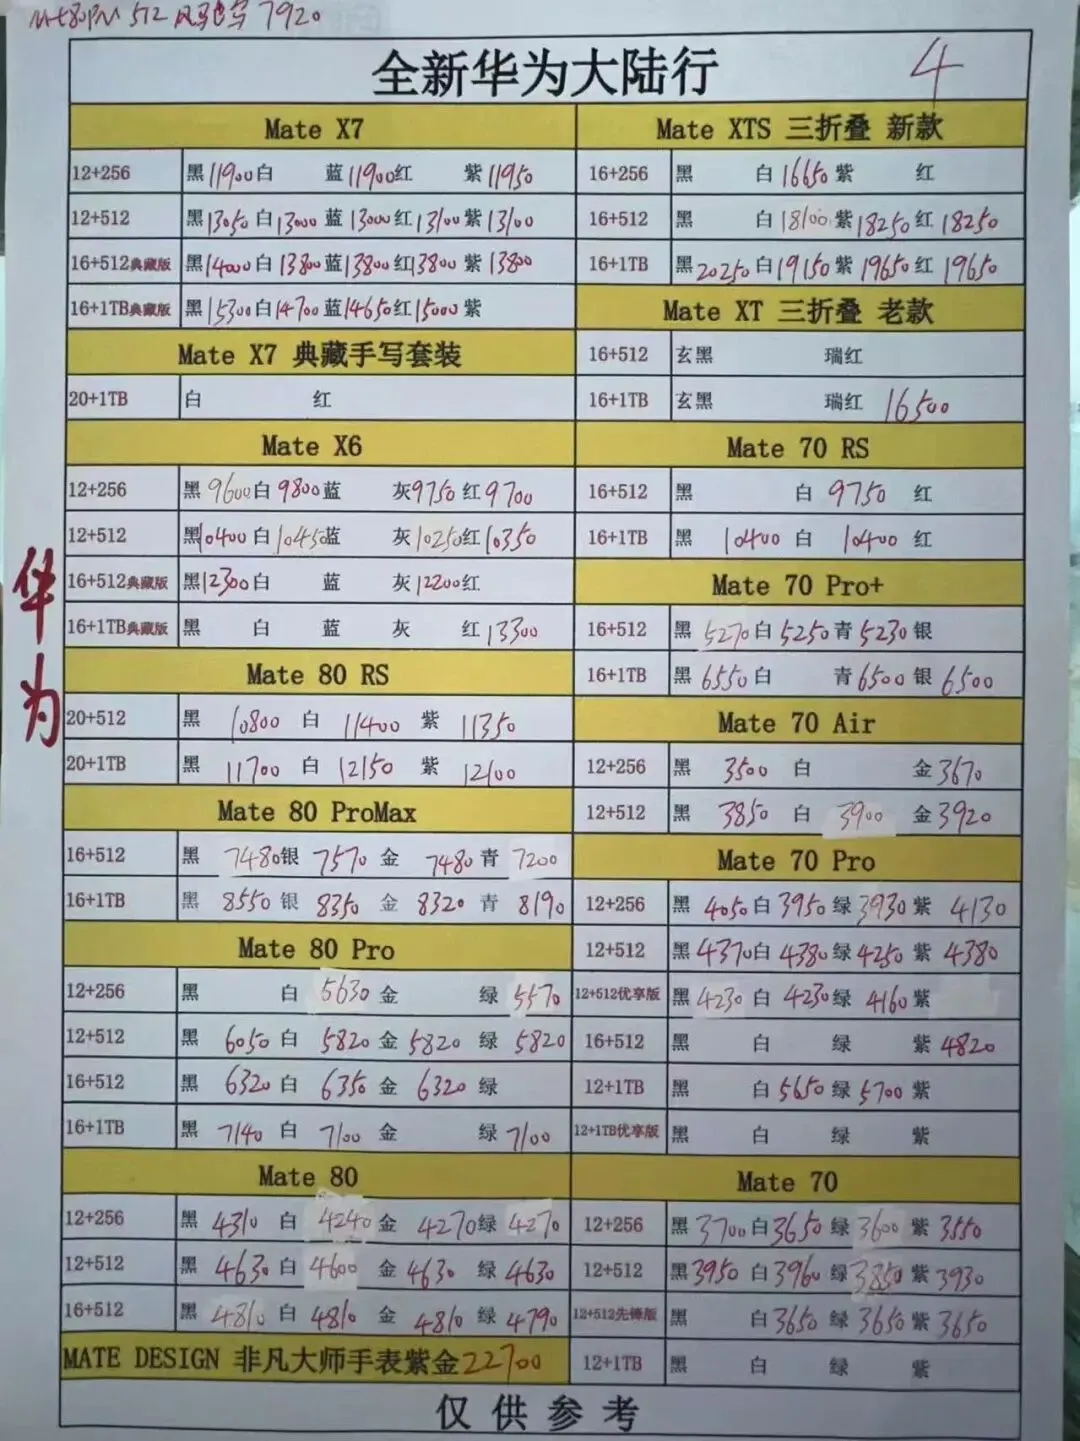 M80PM 512 风驰 7920
全新华为大陆行
4
华为
Mate X7
12+256 黑11900白 蓝11900红 紫11950
12+512 黑13050白13000蓝13000红13100紫13100
16+512典藏版 黑14000白13800蓝13800红13800紫13800
16+1TB典藏版 黑15300白14700蓝14650红15000紫
Mate X7 典藏手写套装
20+1TB 白 红
Mate X6
12+256 黑9600白9800蓝 灰9750红9700
12+512 黑10400白10450蓝 灰10250红10350
16+512典藏版 黑12300白 蓝 灰12200红
16+1TB典藏版 黑 白 蓝 灰 红13300
Mate 80 RS
20+512 黑 10800 白 11400 紫 11350
20+1TB 黑 11700 白 12150 紫 12100
Mate 80 ProMax
16+512 黑 7480银 7570 金 7480青 7200
16+1TB 黑 8550银 8350 金 8320 青 8190
Mate 80 Pro
12+256 黑 白 5630金 绿5570
12+512 黑 6050白 5820金5820 绿 5820
16+512 黑 6320白 6350金 6320绿
16+1TB 黑 7140白 7100金 绿7100
Mate 80
12+256 黑 4310 白 4240金 4270绿4270
12+512 黑 4630白 4600 金 4630 绿4630
16+512 黑 4810白 4810 金 4810绿4790
MATE DESIGN 非凡大师手表紫金22700
Mate XTS 三折叠 新款
16+256 黑 白16650紫 红
16+512 黑 白18100紫18250红18250
16+1TB 黑20250白19150紫19650红19650
Mate XT 三折叠 老款
16+512 玄黑 瑞红
16+1TB 玄黑 瑞红 16500
Mate 70 RS
16+512 黑 白 9750 红
16+1TB 黑 10400白 10400红
Mate 70 Pro+
16+512 黑5270白5250青5230银
16+1TB 黑6550白 青6500银6500
Mate 70 Air
12+256 黑 3500 白 金3670
12+512 黑 3850 白 3900 金3920
Mate 70 Pro
12+256 黑4050白3950绿3930紫 4130
12+512 黑4370白4380绿4250紫4380
12+512优享版 黑4230白4230绿4160紫
16+512 黑 白 绿 紫4820
12+1TB 黑 白5650绿5700紫
12+1TB优享版 黑 白 绿 紫
Mate 70
12+256 黑3700白3650绿3600紫3550
12+512 黑3950白3960绿3850紫3930
12+512先锋版 黑 白3650绿3650紫3650
12+1TB 黑 白 绿 紫
仅供参考